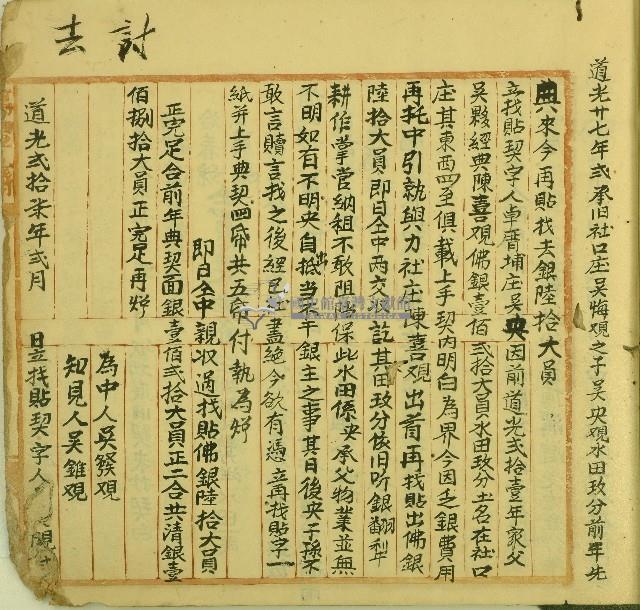 道光廿七年弍承旧社口庄吳悔观之子吳央观水田玖分前年先
典来今再貼找去銀陸拾大員
立找貼契字人阜厝埔庄吳央因前道光弍拾壹年家父
吳夥經典陳喜观佛銀壹佰弍拾大員水田玖分土名在社口
庄其東西四至俱載上手契內明白為界今因乏銀費用
再托中引就與力社庄陳喜观出首再找貼出佛銀
陸拾大員即日仝中兩交收訖其田玖分依旧听銀主翻犁
耕作掌管納租不敢阻隔保此水田係央承父物業並無
不明如有不明央自出抵當不干銀主之事其日後央子孫不
敢言贖言找之後經已尽絕今欲有憑立再找貼字一
紙并上手典契四帋共五帋付執為炤
即日仝中親收過找貼佛銀陸拾大員
正完足合前年典契面銀壹佰弍拾大員正二合共清銀壹
佰捌拾大員正完足再炤
為中人吳發观
知見人吳錐观
道光弍拾柒年弍月 日立找貼契字人
討去